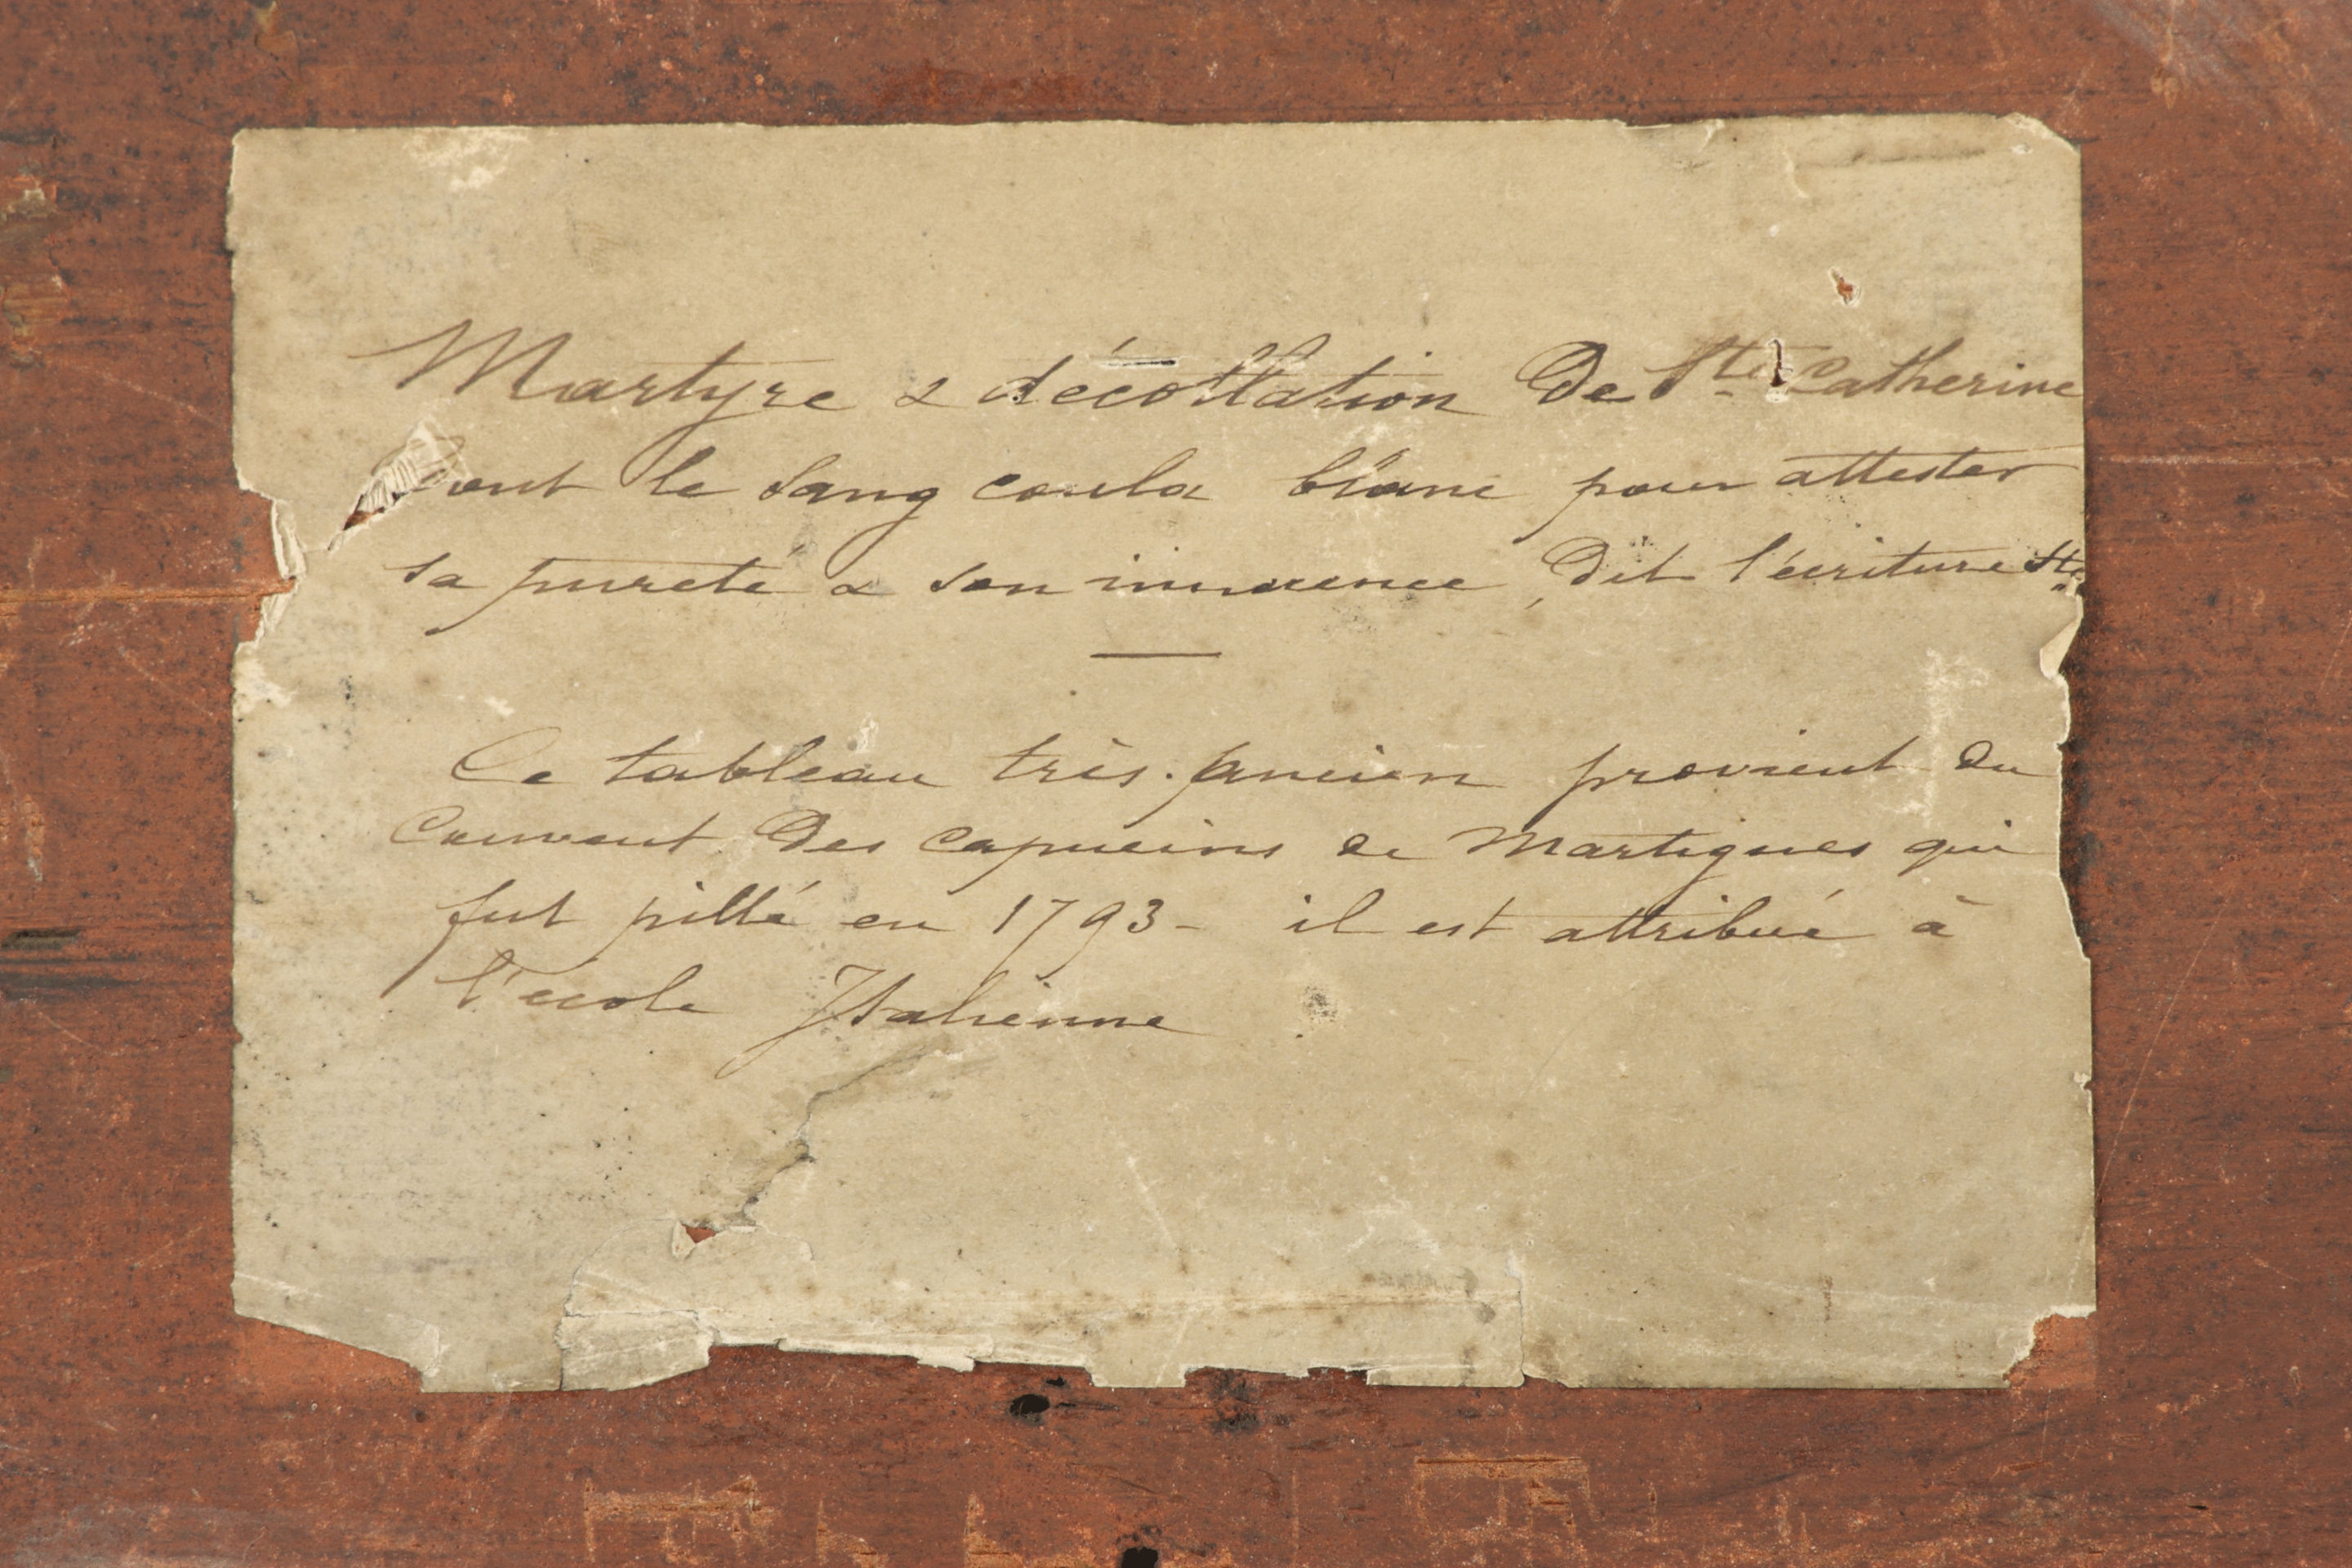 Martyre & décollation De Ste Catherine
Dont le sang coula blanc pour attester
sa pureté & son innocence, Dit l'écriture Ste
Ce tableau très-ancien provient du
Couvent Des capucins de Martigues qui
fut pillé en 1793 - il est attribué à
l'école Italienne